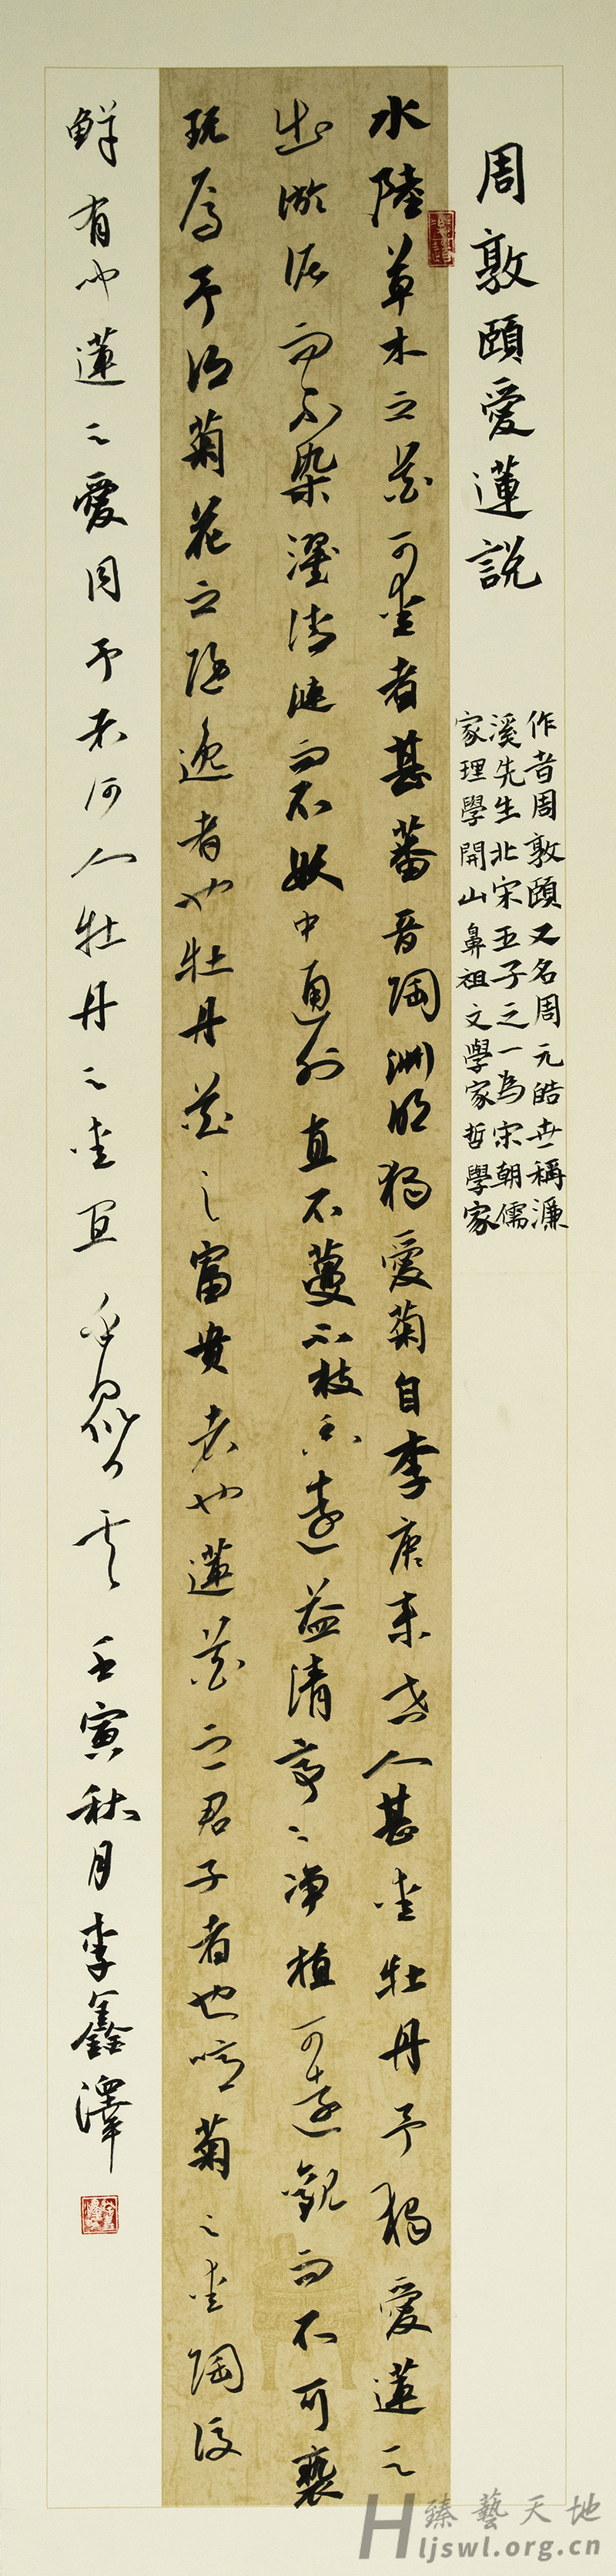 周敦頤愛蓮說
作者周敦頤又名周元皓世稱濂
溪先生北宋五子之一為宋朝儒
家理學開山鼻祖文學家哲學家
水陸草木之花可愛者甚蕃晉陶淵明獨愛菊自李唐來世人甚愛牡丹予獨愛蓮之
出淤泥而不染濯清漣而不妖中通外直不蔓不枝香遠益清亭〻淨植可遠觀而不可褻
玩焉予謂菊花之隱逸者也牡丹花之富貴者也蓮花之君子者也噫菊之愛陶後
鮮有聞蓮之愛同予者何人牡丹之愛宜乎眾矣云 壬寅秋月李鑫澤
臻藝天地
Hljswl.org.cn